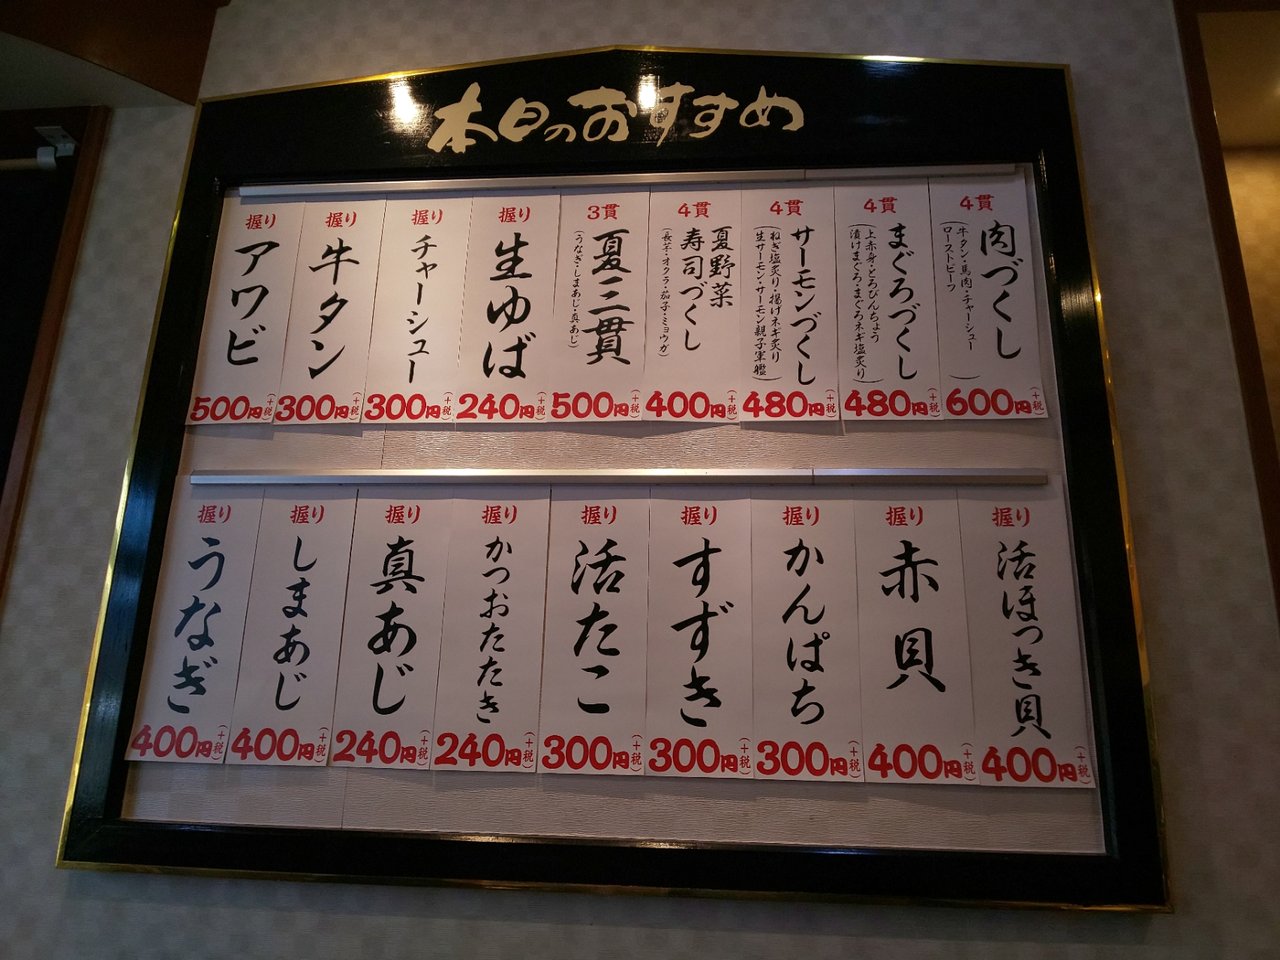 本日のおすすめ
4貫
肉づくし
(牛タン・馬肉・チャーシュー
ローストビーフ)
600円(+税)
4貫
まぐろづくし
(上赤身・とろびんちょう
漬けまぐろ・まぐろネギ塩炙り)
480円(+税)
4貫
サーモンづくし
(ねぎ塩炙り・揚げネギ炙り
生サーモン・サーモン親子軍艦)
480円(+税)
4貫
夏野菜
寿司づくし
(長芋・オクラ・茄子・ミョウガ)
400円(+税)
3貫
夏三貫
(うなぎ・しまあじ・真あじ)
500円(+税)
握り
生ゆば
240円(+税)
握り
チャーシュー
300円(+税)
握り
牛タン
300円(+税)
握り
アワビ
500円(+税)
握り
活ほっき貝
400円(+税)
握り
赤貝
400円(+税)
握り
かんぱち
300円(+税)
握り
すずき
300円(+税)
握り
活たこ
300円(+税)
握り
かつおたたき
240円(+税)
握り
真あじ
240円(+税)
握り
しまあじ
400円(+税)
握り
うなぎ
400円(+税)